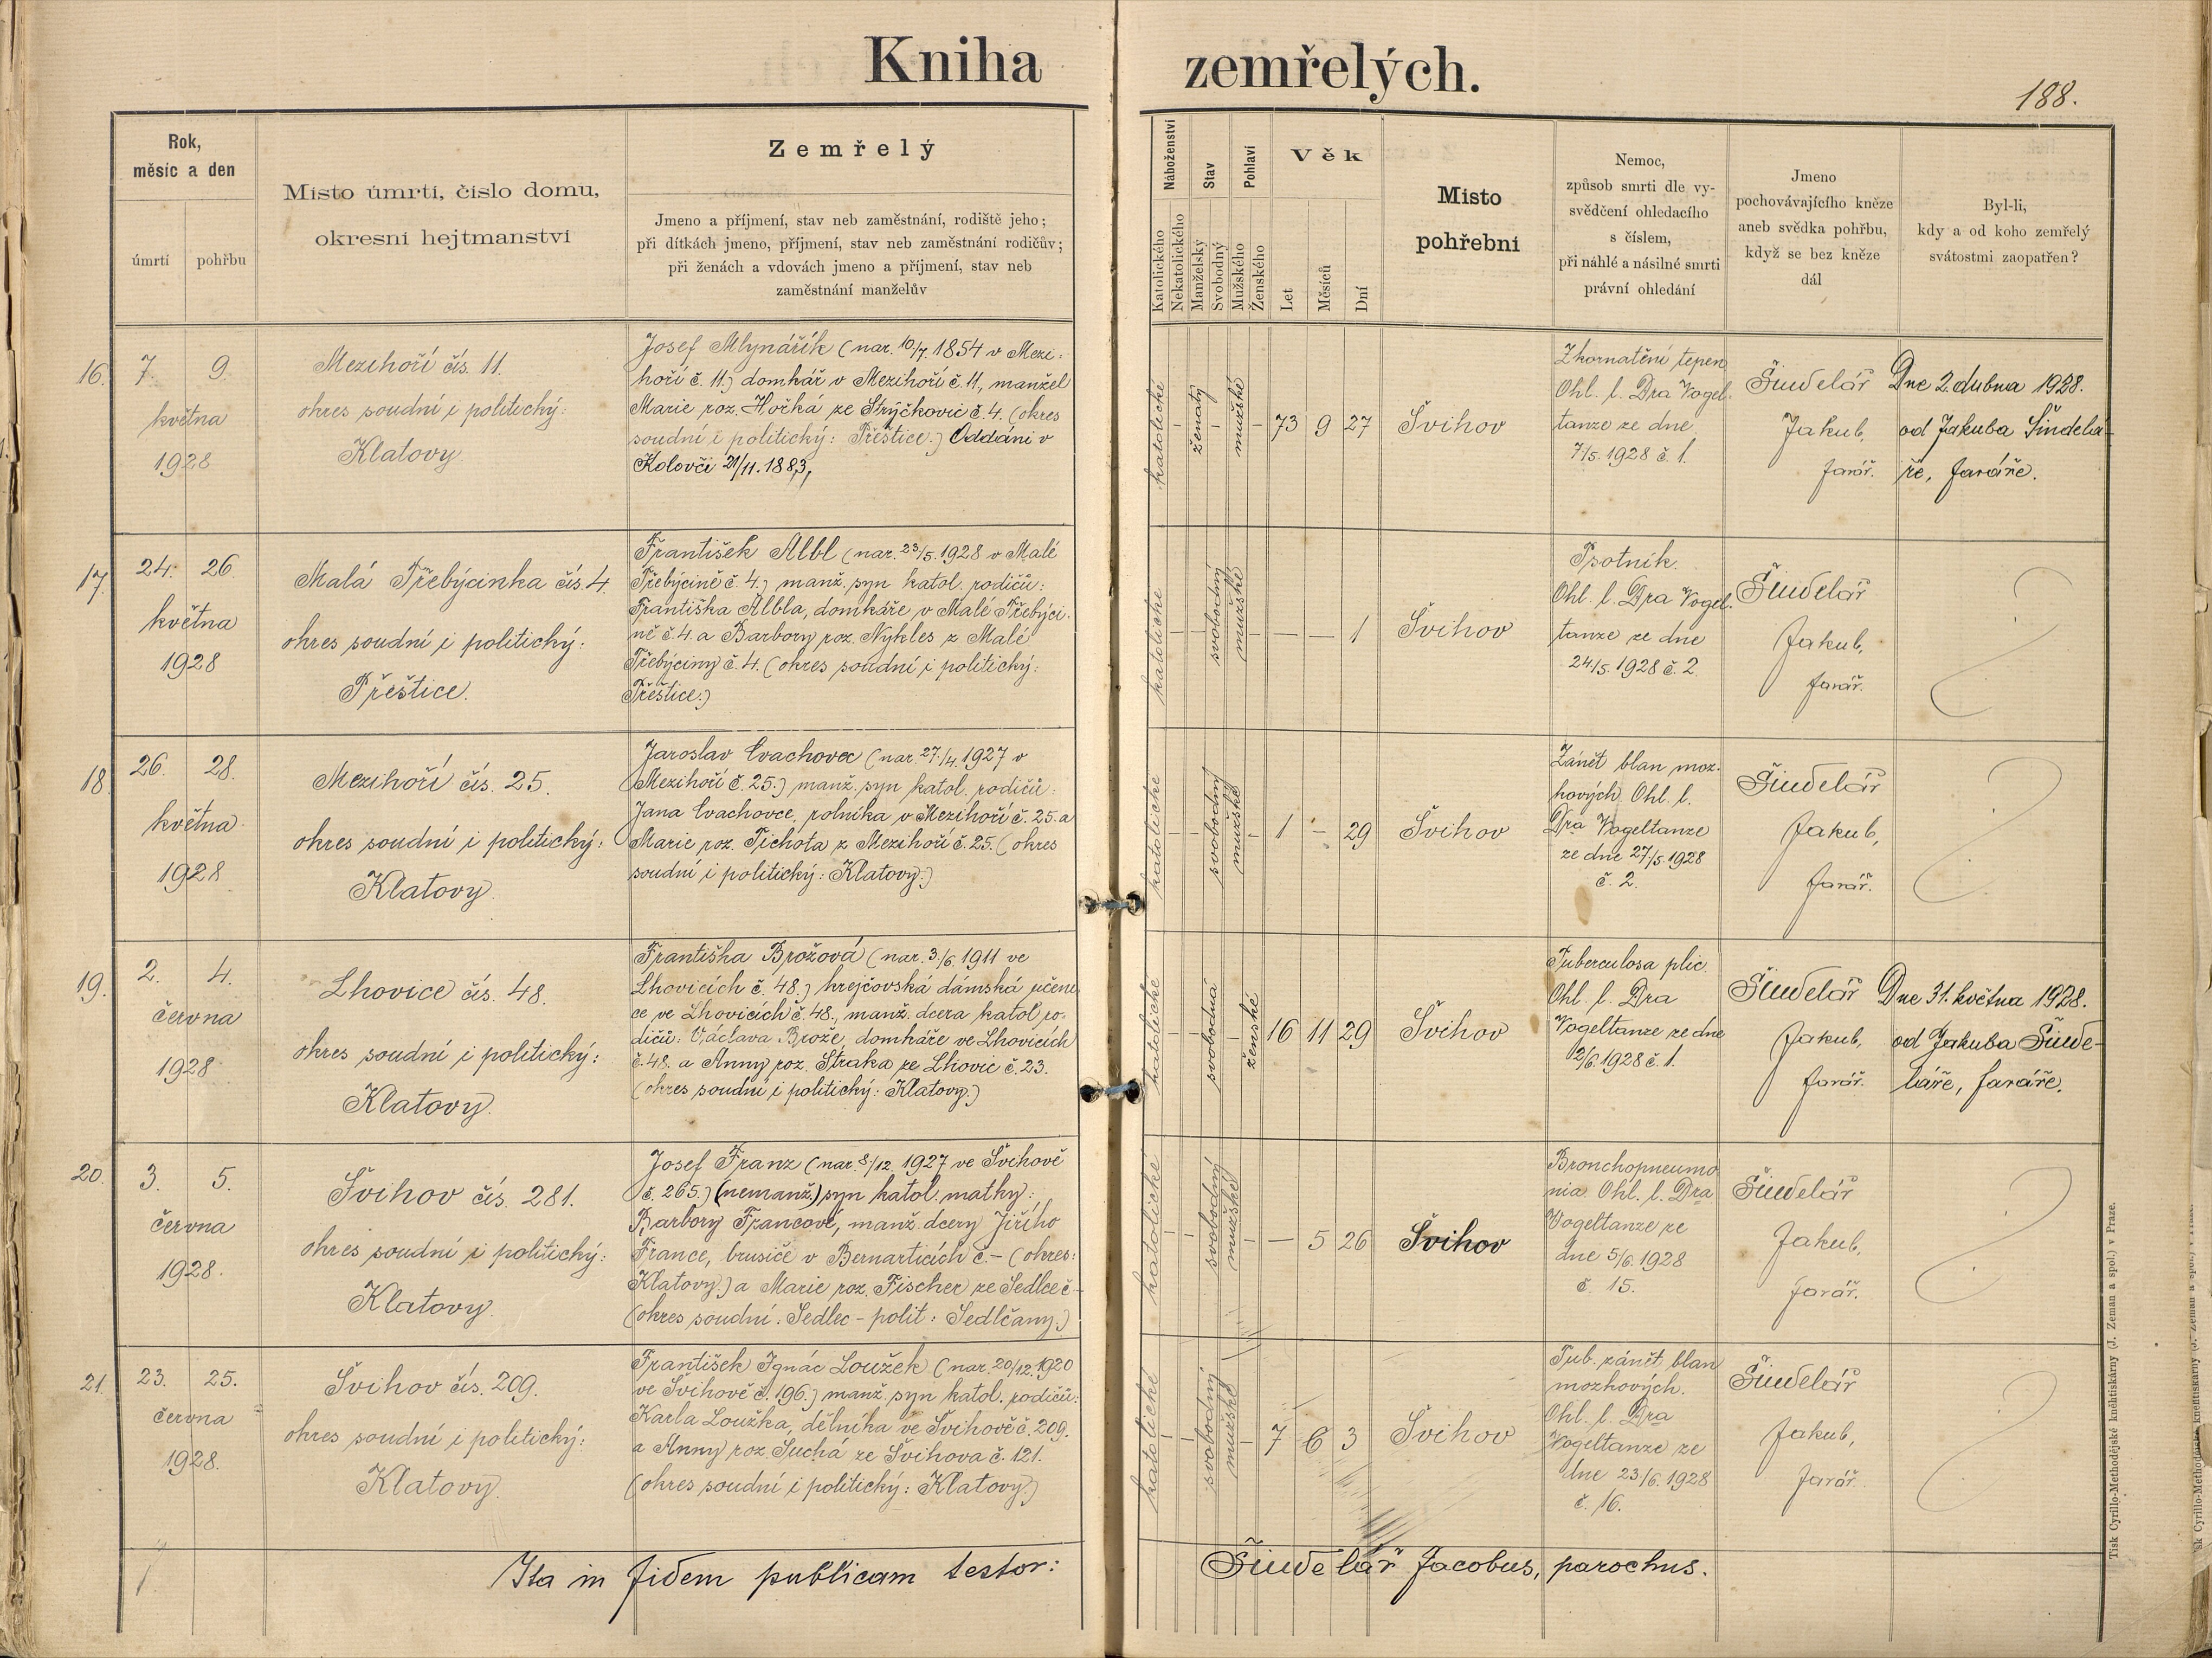 Kniha zemřelých.
188.
Rok,
měsíc a den
úmrtí
pohřbu
Místo úmrtí, číslo domu,
okresní hejtmanství
Zemřelý
Jmeno a příjmení, stav neb zaměstnání, rodiště jeho;
při dítkách jmeno, příjmení, stav neb zaměstnání rodičův;
při ženách a vdovách jmeno a příjmení, stav neb
zaměstnání manželův
Náboženství
Katolického
Nekatolického
Stav
Manželský
Svobodný
Pohlaví
Mužského
Ženského
Věk
Let
Měsíců
Dní
Místo
pohřební
Nemoc,
způsob smrti dle vy-
svědčení ohledacího
s číslem,
při náhlé a násilné smrti
právní ohledání
Jmeno
pochovávajícího kněze
aneb svědka pohřbu,
když se bez kněze
dál
Byl-li,
kdy a od koho zemřelý
svátostmi zaopatřen?
16.
7. 9.
května
1928
Mezihoří čís. 11.
okres soudní i politický:
Klatovy.
Josef Mlynářík (nar. 10/7. 1854 v Mezi-
hoří č. 11.) domkář v Mezihoří č. 11, manžel
Marie roz. Hořká ze Strýčkovic č. 4. (okres
soudní i politický: Přeštice.) Oddáni v
Kolovči 21/11. 1883,
katolické
–
ženatý
–
mužské
–
73 9 27
Švihov
Zkornatění tepen
Ohl. l. Dra Vogel-
tanze ze dne
7/5. 1928 č. 1.
Šindelář
Jakub,
farář.
Dne 2. dubna 1928.
od Jakuba Šindelá-
ře, faráře.
17.
24. 26.
května
1928
Malá Třebýcinka čís. 4.
okres soudní i politický:
Přeštice.
František Albl (nar. 23/5. 1928 v Malé
Třebýcině č. 4.) manž. syn katol. rodičů:
Františka Albla, domkáře v Malé Třebýci-
ně č. 4. a Barbory roz. Nykles z Malé
Třebýciny č. 4. (okres soudní i politický:
Přeštice.)
katolické
– –
svobodný
mužské
– – – 1
Švihov
Psotník.
Ohl. l. Dra Vogel-
tanze ze dne
24/5. 1928 č. 2.
Šindelář
Jakub,
farář.
18.
26. 28.
května
1928
Mezihoří čís. 25.
okres soudní i politický:
Klatovy.
Jaroslav Cvachovec (nar. 27./4. 1927 v
Mezihoří č. 25.) manž. syn katol. rodičů:
Jana Cvachovce, rolníka v Mezihoří č. 25. a
Marie roz. Tichota z Mezihoří č. 25. (okres
soudní i politický: Klatovy.)
katolické
– –
svobodný
mužské
– 1 – 29
Švihov
Zánět blan moz-
kových. Ohl. l.
Dra Vogeltanze
ze dne 27./5. 1928
č. 2.
Šindelář
Jakub,
farář.
19.
2. 4.
června
1928
Lhovice čís. 48.
okres soudní i politický:
Klatovy.
Františka Brožová (nar. 3./6. 1911 ve
Lhovicích č. 48.) krejčovská dámská učeni-
ce ve Lhovicích č. 48., manž. dcera katol. ro-
dičů: Václava Brože, domkáře ve Lhovicích
č. 48. a Anny roz. Straka ze Lhovic č. 23.
(okres soudní i politický: Klatovy.)
katolické
– –
svobodná
–
ženské
16 11 29
Švihov
Tuberculosa plic.
Ohl. l. Dra
Vogeltanze ze dne
2/6. 1928 č. 1.
Šindelář
Jakub,
farář.
Dne 31. května 1928.
od Jakuba Šinde-
láře, faráře.
20.
3. 5.
června
1928.
Švihov čís. 281.
okres soudní i politický:
Klatovy.
Josef Franz (nar. 8./12. 1927 ve Švihově
č. 265.) (nemanž.) syn katol. matky:
Barbory Francové, manž. dcery Jiřího
France, brusiče v Bernarticích č. – (okres:
Klatovy.) a Marie roz. Fischer ze Sedlce č –
(okres soudní: Sedlec – polit: Sedlčany.)
katolické
– –
svobodný
mužské
– – 5 26
Švihov
Bronchopneumo
nia. Ohl. l. Dra
Vogeltanze ze
dne 5/6. 1928
č. 15.
Šindelář
Jakub,
farář.
21.
23. 25.
června
1928.
Švihov čís. 209.
okres soudní i politický:
Klatovy.
František Ignác Loužek (nar. 20/12. 1920
ve Švihově č. 196.) manž. syn katol. rodičů:
Karla Loužka, dělníka ve Švihově č. 209.
a Anny roz. Suchá ze Švihova č. 121.
(okres soudní i politický: Klatovy.)
katolické
– –
svobodný
mužské
– 7 6 3
Švihov
Tub. zánět blan
mozkových.
Ohl. l. Dra
Vogeltanze ze
dne 23/6. 1928
č. 16.
Šindelář
Jakub,
farář.
Ita in fidem publicam testor: Šindelář Jacobus, parochus.
Tisk Cyrillo-Methodějské knihtiskárny (J. Zeman a spol.) v Praze.